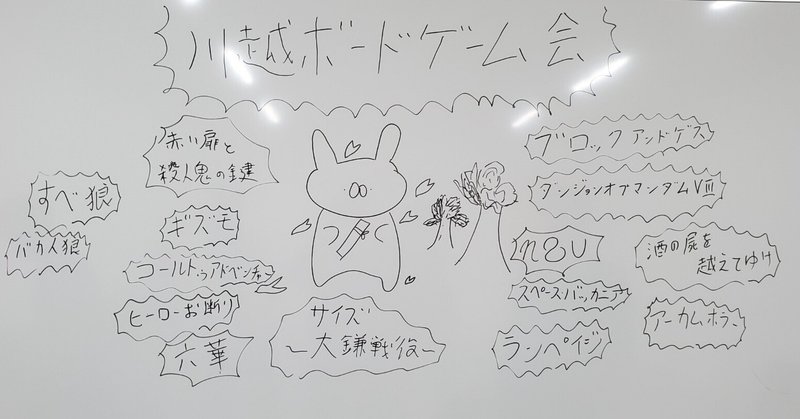 川越ボードゲーム会
赤い扉と
殺人鬼の鍵
すべ狼
バカ人狼
ギズモ
コールドゥアドベンチャー
ヒーローお断り
六華
サイズ
～大鎌戦役～
ブロックアンドゲス
ダンジョンオブマンダムⅧ
酒の屍を
越えてゆけ
スペースバッカニア
アーカムホラー
ランペイジ